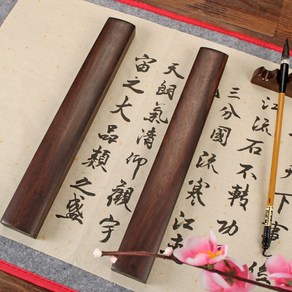 江流石不轉功
三分國流寒江
天朗氣清仰觀宇
宙之大品類之盛